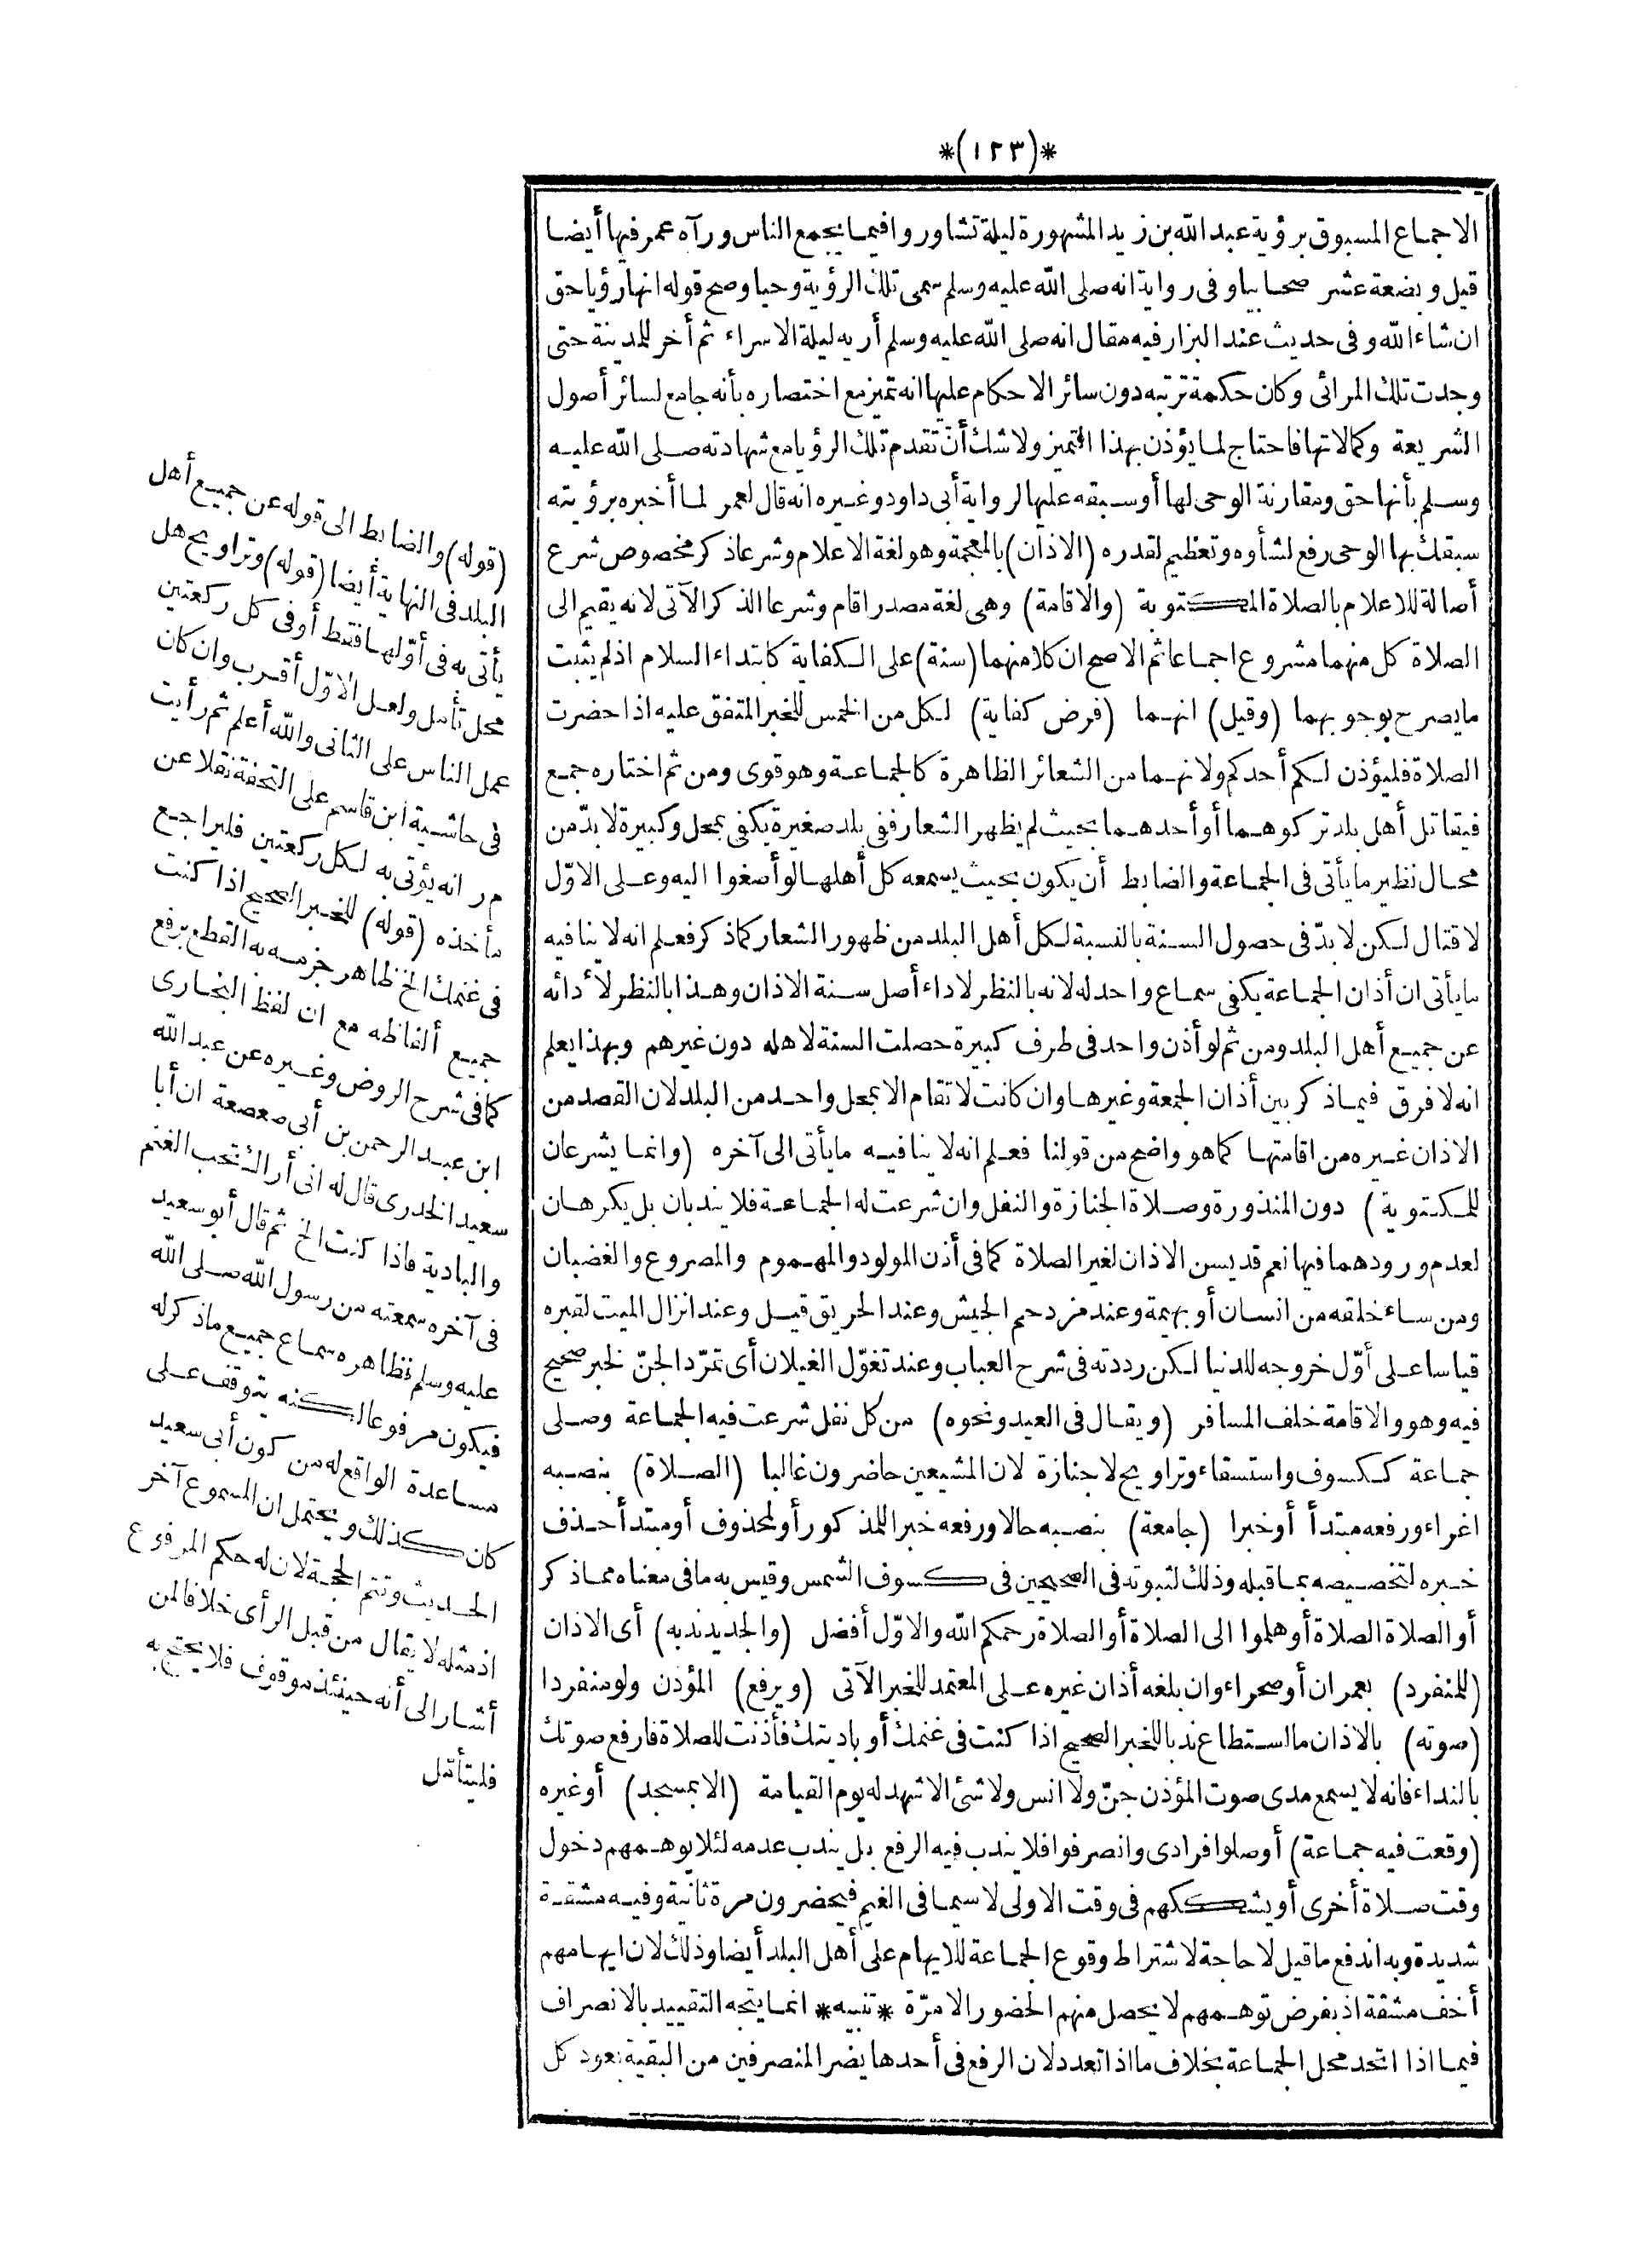 *(١٢٣)*
الاجماع المسبوق برؤية عبد الله بن زيد المشهورة ليلة تشاوروا فيما يجمع الناس ورآه عمر فيها أيضا
قيل وبضعة عشر صحابيا وفى رواية انه صلى الله عليه وسلم سمى تلك الرؤية وحيا وصح قوله انها رؤيا حق
ان شاء الله وفى حديث عند البزار فيه مقال انه صلى الله عليه وسلم أريه ليلة الاسراء ثم أخر للمدينة حتى
وجدت تلك المرائى وكان حكمة ترتبه دون سائر الاحكام عليها انه تميز مع اختصاره بأنه جامع لسائر أصول
الشريعة وكمالاتها فاحتاج لما يؤذن بهذا التميز ولا شك أنّ تقدم تلك الرؤيا مع شهادته صلى الله عليه
وسلم بأنها حق ومقارنة الوحى لها أو سبقه عليها لرواية أبى داود وغيره انه قال لعمر لما أخبره برؤيته
سبقك بها الوحى رفع لشأوه وتعظيم لقدره (الاذان) بالمعجمة وهو لغة الاعلام وشرعا ذكر مخصوص شرع
أصالة للاعلام بالصلاة المكتوبة (والاقامة) وهى لغة مصدر اقام وشرعا الذكر الآتى لانه يقيم الى
الصلاة كل منهما مشروع اجماعا ثم الاصح ان كلا منهما (سنة) على الكفاية كابتداء السلام اذ لم يثبت
ما يصرح بوجوبهما (وقيل) انهما (فرض كفاية) لكل من الخمس للخبر المتفق عليه اذا حضرت
الصلاة فليؤذن لكم أحدكم ولانهما من الشعائر الظاهرة كالجماعة وهو قوى ومن ثم اختاره جمع
فيقاتل أهل بلد تركوهما أو أحدهما بحيث لم يظهر الشعار ففى بلد صغيرة يكفى بمحل وكبيرة لا بدّ من
محال نظير ما يأتى فى الجماعة والضابط أن يكون بحيث يسمعه كل أهلها لو أصغوا اليه وعلى الاوّل
لا قتال لكن لا بدّ فى حصول السنة بالنسبة لكل أهل البلد من ظهور الشعار كما ذكر فعلم انه لا ينافيه
ما يأتى ان أذان الجماعة يكفى سماع واحد له لانه بالنظر لاداء أصل سنة الاذان وهذا بالنظر لأدائه
عن جميع أهل البلد ومن ثم لو أذن واحد فى طرف كبيرة حصلت السنة لاهله دون غيرهم وبهذا يعلم
انه لا فرق فيما ذكر بين أذان الجمعة وغيرها وان كانت لا تقام الا بمحل واحد من البلد لان القصد من
الاذان غيره من اقامتها كما هو واضح من قولنا فعلم انه لا ينافيه ما يأتى الى آخره (وانما يشرعان
للمكتوبة) دون المنذورة وصلاة الجنازة والنفل وان شرعت له الجماعة فلا يندبان بل يكرهان
لعدم ورودهما فيها نعم قد يسن الاذان لغير الصلاة كما فى أذن المولود والمهموم والمصروع والغضبان
ومن ساء خلقه من انسان أو بهيمة وعند مزدحم الجيش وعند الحريق قيل وعند انزال الميت لقبره
قياسا على أوّل خروجه للدنيا لكن رددته فى شرح العباب وعند تغوّل الغيلان أى تمرّد الجنّ لخبر صحيح
فيه وهو والاقامة خلف المسافر (ويقال فى العيد ونحوه) من كل نفل شرعت فيه الجماعة وصلى
جماعة ككسوف واستسقاء وتراويح لا جنازة لان المشيعين حاضرون غالبا (الصلاة) بنصبه
اغراء ورفعه مبتدأ أو خبرا (جامعة) بنصبه حالا ورفعه خبرا للمذكور أو لمحذوف أو مبتدأ حذف
خبره لتخصيصه بما قبله وذلك لثبوته فى الصحيحين فى كسوف الشمس وقيس به ما فى معناه مما ذكر
أو الصلاة الصلاة أو هلموا الى الصلاة أو الصلاة رحمكم الله والاوّل أفضل (والجديد ندبه) أى الاذان
(للمنفرد) بعمران أو صحراء وان بلغه أذان غيره على المعتمد للخبر الآتى (ويرفع) المؤذن ولو منفردا
(صوته) بالاذان ما استطاع ندبا للخبر الصحيح اذا كنت فى غنمك أو باديتك فأذنت للصلاة فارفع صوتك
بالنداء فانه لا يسمع مدى صوت المؤذن جنّ ولا انس ولا شئ الا شهد له يوم القيامة (الا بمسجد) أو غيره
(وقعت فيه جماعة) أو صلوا فرادى وانصرفوا فلا يندب فيه الرفع بل يندب عدمه لئلا يوهمهم دخول
وقت صلاة أخرى أو يشككهم فى وقت الاولى لا سيما فى الغيم فيحضرون مرة ثانية وفيه مشقة
شديدة وبه اندفع ما قيل لا حاجة لاشتراط وقوع الجماعة للايهام على أهل البلد أيضا وذلك لان ايهامهم
أخف مشقة اذ بفرض توهمهم لا يحصل منهم الحضور الا مرّة *تنبيه* انما يتجه التقييد بالانصراف
فيما اذا اتحد محل الجماعة بخلاف ما اذا تعدد لان الرفع فى أحدها يضر المنصرفين من البقية بعود كل
(قوله) والضابط الى قوله عن جميع أهل
البلد فى النهاية أيضا (قوله) وتراويح هل
يأتى به فى أوّلها فقط أو فى كل ركعتين
محل تأمل ولعل الاوّل أقرب وان كان
عمل الناس على الثانى والله أعلم ثم رأيت
فى حاشية ابن قاسم على التحفة نقلا عن
م ر انه يؤتى به لكل ركعتين فليراجع
مأخذه (قوله) للخبر الصحيح اذا كنت
فى غنمك الخ ظاهر جزمه به القطع برفع
جميع ألفاظه مع ان لفظ البخارى
كما فى شرح الروض وغيره عن عبد الله
ابن عبد الرحمن بن أبى صعصعة ان أبا
سعيد الخدرى قال له انى أراك تحب الغنم
والبادية فاذا كنت الخ ثم قال أبو سعيد
فى آخره سمعته من رسول الله صلى الله
عليه وسلم فظاهره سماع جميع ما ذكر له
فيكون مرفوعا لكنه يتوقف على
مساعدة الواقع له من كون أبى سعيد
كان كذلك ويحتمل ان المسموع آخر
الحديث وتتم الحجة لان له حكم المرفوع
اذ مثله لا يقال من قبل الرأى خلافا لمن
أشار الى أنه حينئذ موقوف فلا يحتج به
فليتأمّل